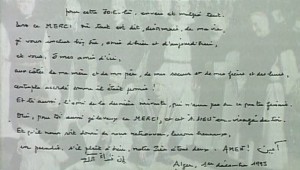 pour cette JOIE-là, envers et malgré tout.
Dans ce MERCI où tout est dit, désormais, de ma vie,
je vous inclus bien sûr, amis d'hier et d'aujourd'hui,
et vous, ô mes amis d'ici,
aux côtés de ma mère et de mon père, de mes soeurs et de mes frères et des leurs,
centuple accordé comme il était promis !
Et toi aussi, l'ami de la dernière minute, qui n'auras pas su ce que tu faisais.
Oui, pour toi aussi je le veux ce MERCI, et cet "A-DIEU" en-visagé de toi.
Et qu'il nous soit donné de nous retrouver, larrons heureux,
en paradis, s'il plaît à Dieu, notre Père à tous deux. AMEN ! آمين
إن شاء الله
Alger, 1er décembre 1993